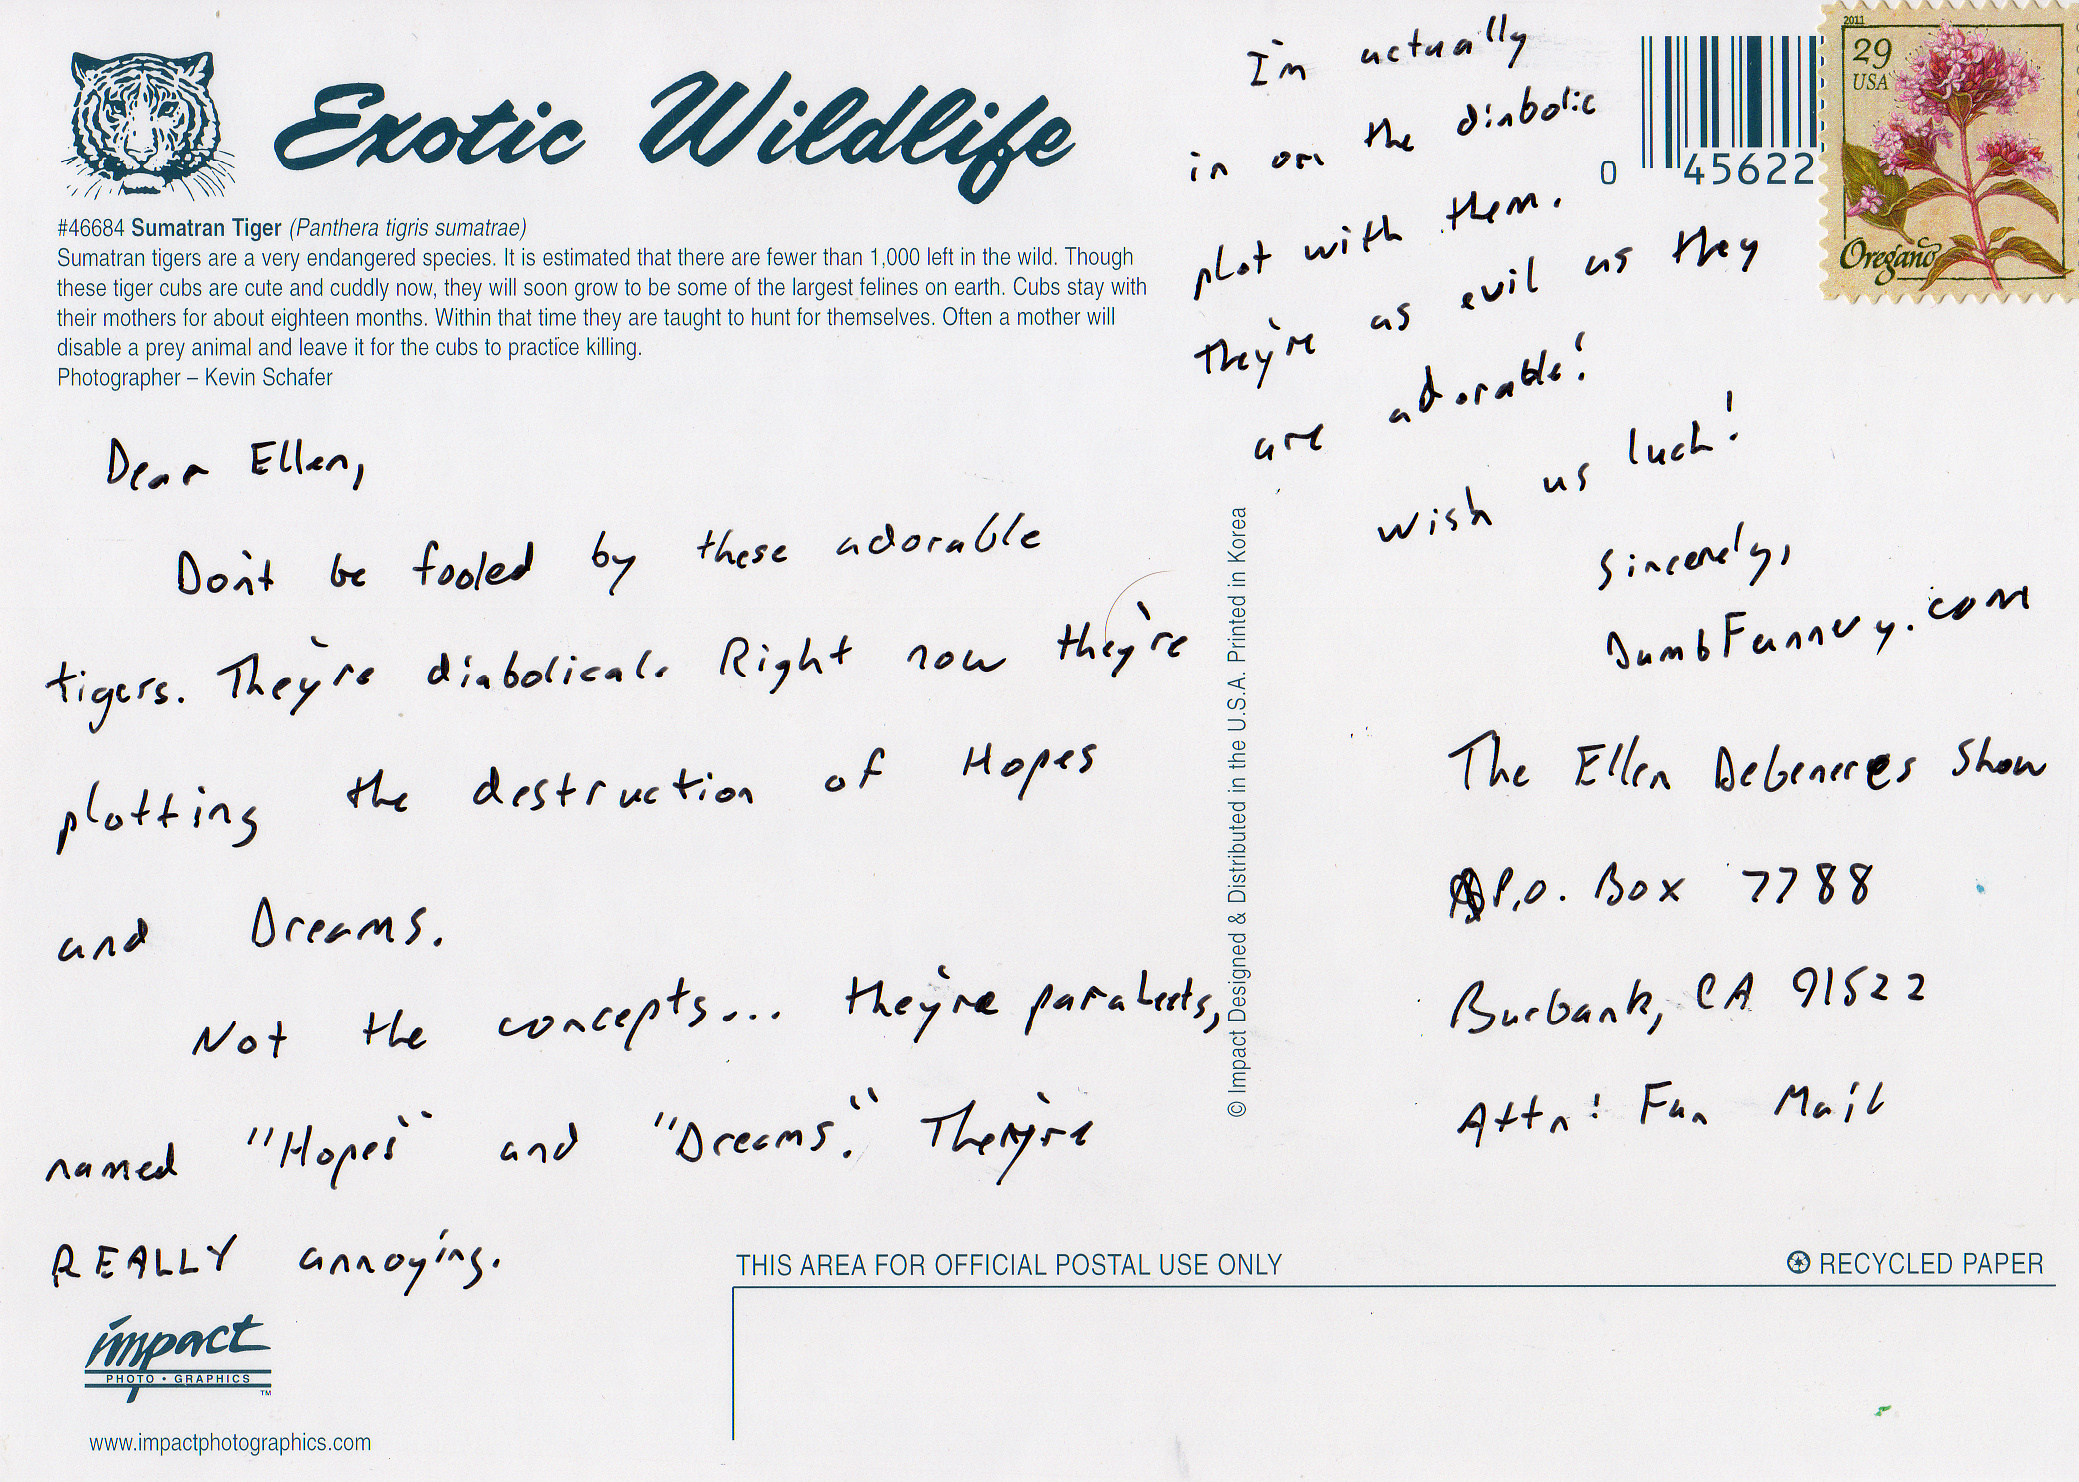 Exotic Wildlife
#46684 Sumatran Tiger (Panthera tigris sumatrae)
Sumatran tigers are a very endangered species. It is estimated that there are fewer than 1,000 left in the wild. Though
these tiger cubs are cute and cuddly now, they will soon grow to be some of the largest felines on earth. Cubs stay with
their mothers for about eighteen months. Within that time they are taught to hunt for themselves. Often a mother will
disable a prey animal and leave it for the cubs to practice killing.
Photographer – Kevin Schafer
Dear Ellen,
Don't be fooled by these adorable
tigers. They're diabolical. Right now they're
plotting the destruction of Hopes
and Dreams.
Not the concepts... they're parakeets,
named "Hopes" and "Dreams." They're
REALLY annoying.
impact
PHOTO • GRAPHICS
TM
www.impactphotographics.com
© Impact Designed & Distributed in the U.S.A. Printed in Korea
I'm actually
in on the diabolic
plot with them.
They're as evil as they
are adorable!
Wish us luck!
Sincerely,
DumbFunnery.com
0 45622
2011
29
USA
Oregano
The Ellen Degeneres Show
P.O. Box 7788
Burbank, CA 91522
Attn: Fun Mail
THIS AREA FOR OFFICIAL POSTAL USE ONLY
RECYCLED PAPER